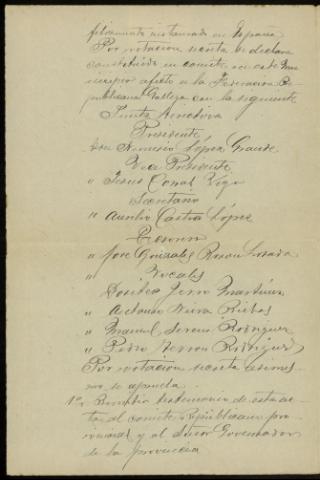 instaurada en España
Por votacion secreta se declara
constituido en comite en este mu
nicipio afecto a la Federacion Re
publicana Gallega con la seguiente
Junta Directiva
Presidente
Don Nemesio López Grande
Vice Presidente
" Jesus Corral Vigo
Secretario
" Aurelio Castro López
Tesorero
" Jose González Losada
" Vocales
Dositeo Martínez
" Antonio Neira
" Manuel Rodríguez
" Pedro Rodríguez
Por votacion secreta
se aprueba
1º testimonio de esta ac
ta al comite Republicano pro
vincial y al Señor Governador
de la provincia